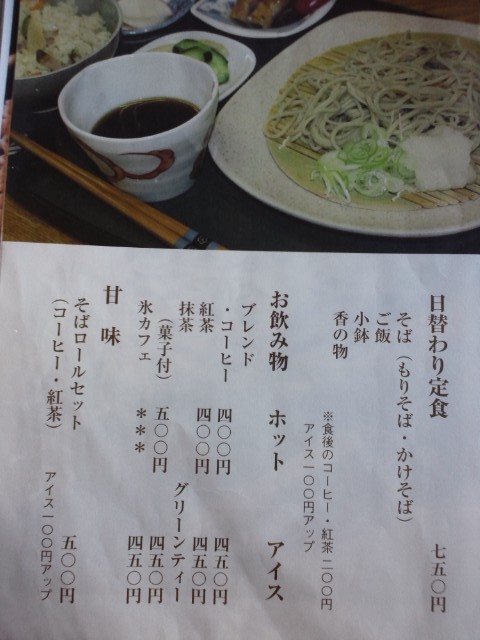 日替わり定食　七五〇円
そば（もりそば・かけそば）
ご飯
小鉢
香の物
※食後のコーヒー・紅茶 二〇〇円
アイス一〇〇円アップ
お飲み物　ホット　アイス
ブレンド
・コーヒー　四〇〇円　四五〇円
紅茶　四〇〇円　四五〇円
抹茶　グリーンティー
（菓子付）　五〇〇円　四五〇円
氷カフェ　＊＊＊　四五〇円
甘味
そばロールセット　五〇〇円
（コーヒー・紅茶）　アイス一〇〇円アップ